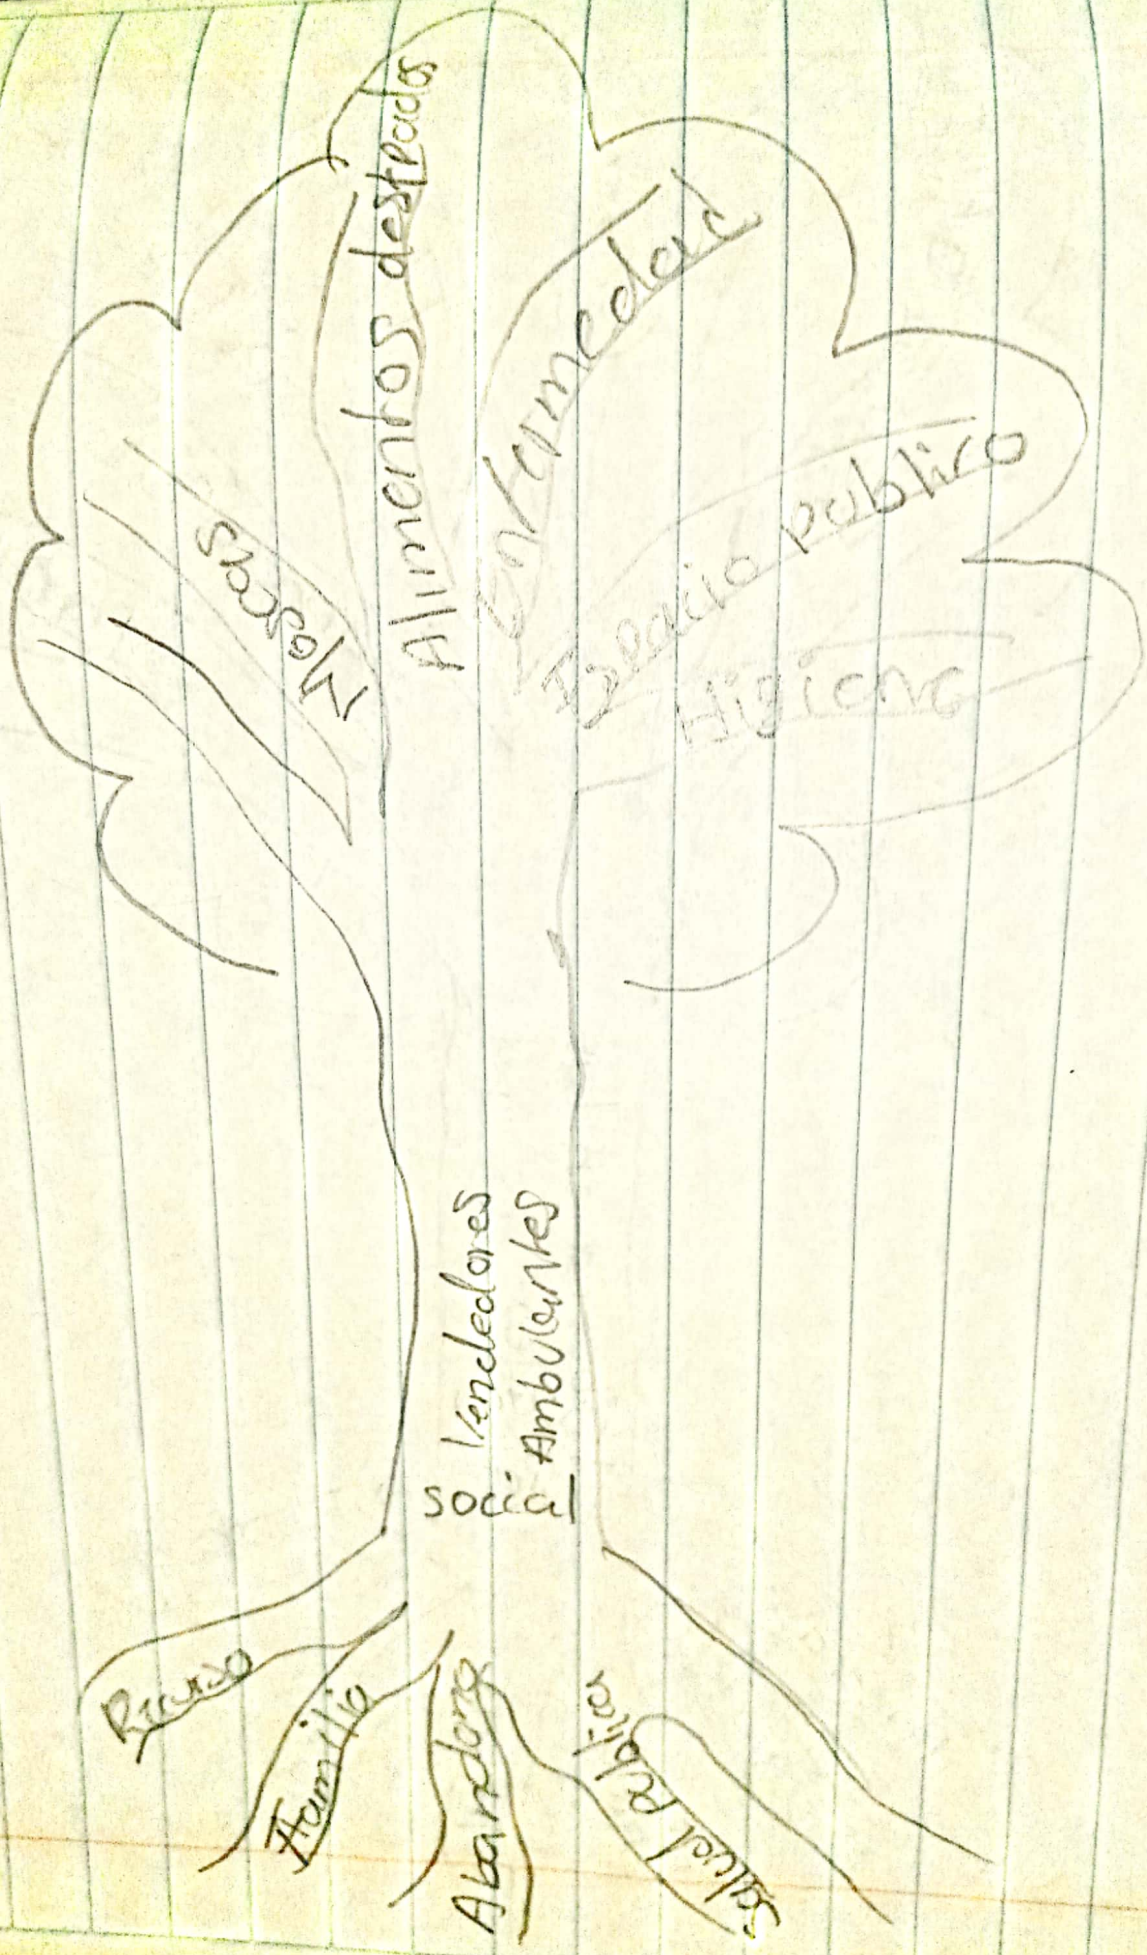 Moscas
Alimentos destpados
enfermedad
Espacio publico
Higiene
Vendedores
Ambulantes
social
Familia
Abandono
Salud publica